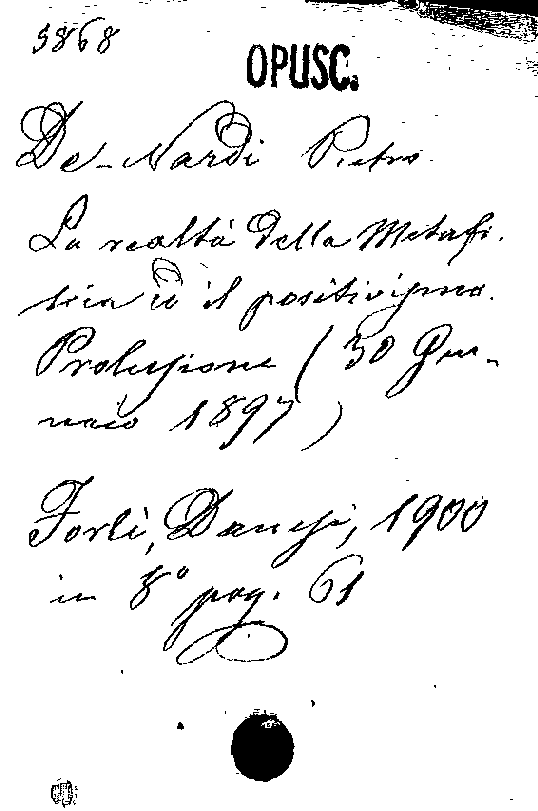 5868
OPUSC.
De-Nardi Pietro.
La realtà della Metafi-
sica e il positivismo.
Prolusione (30 Gen-
naio 1897)
Forlì, Danesi, 1900
in 8° pag. 61